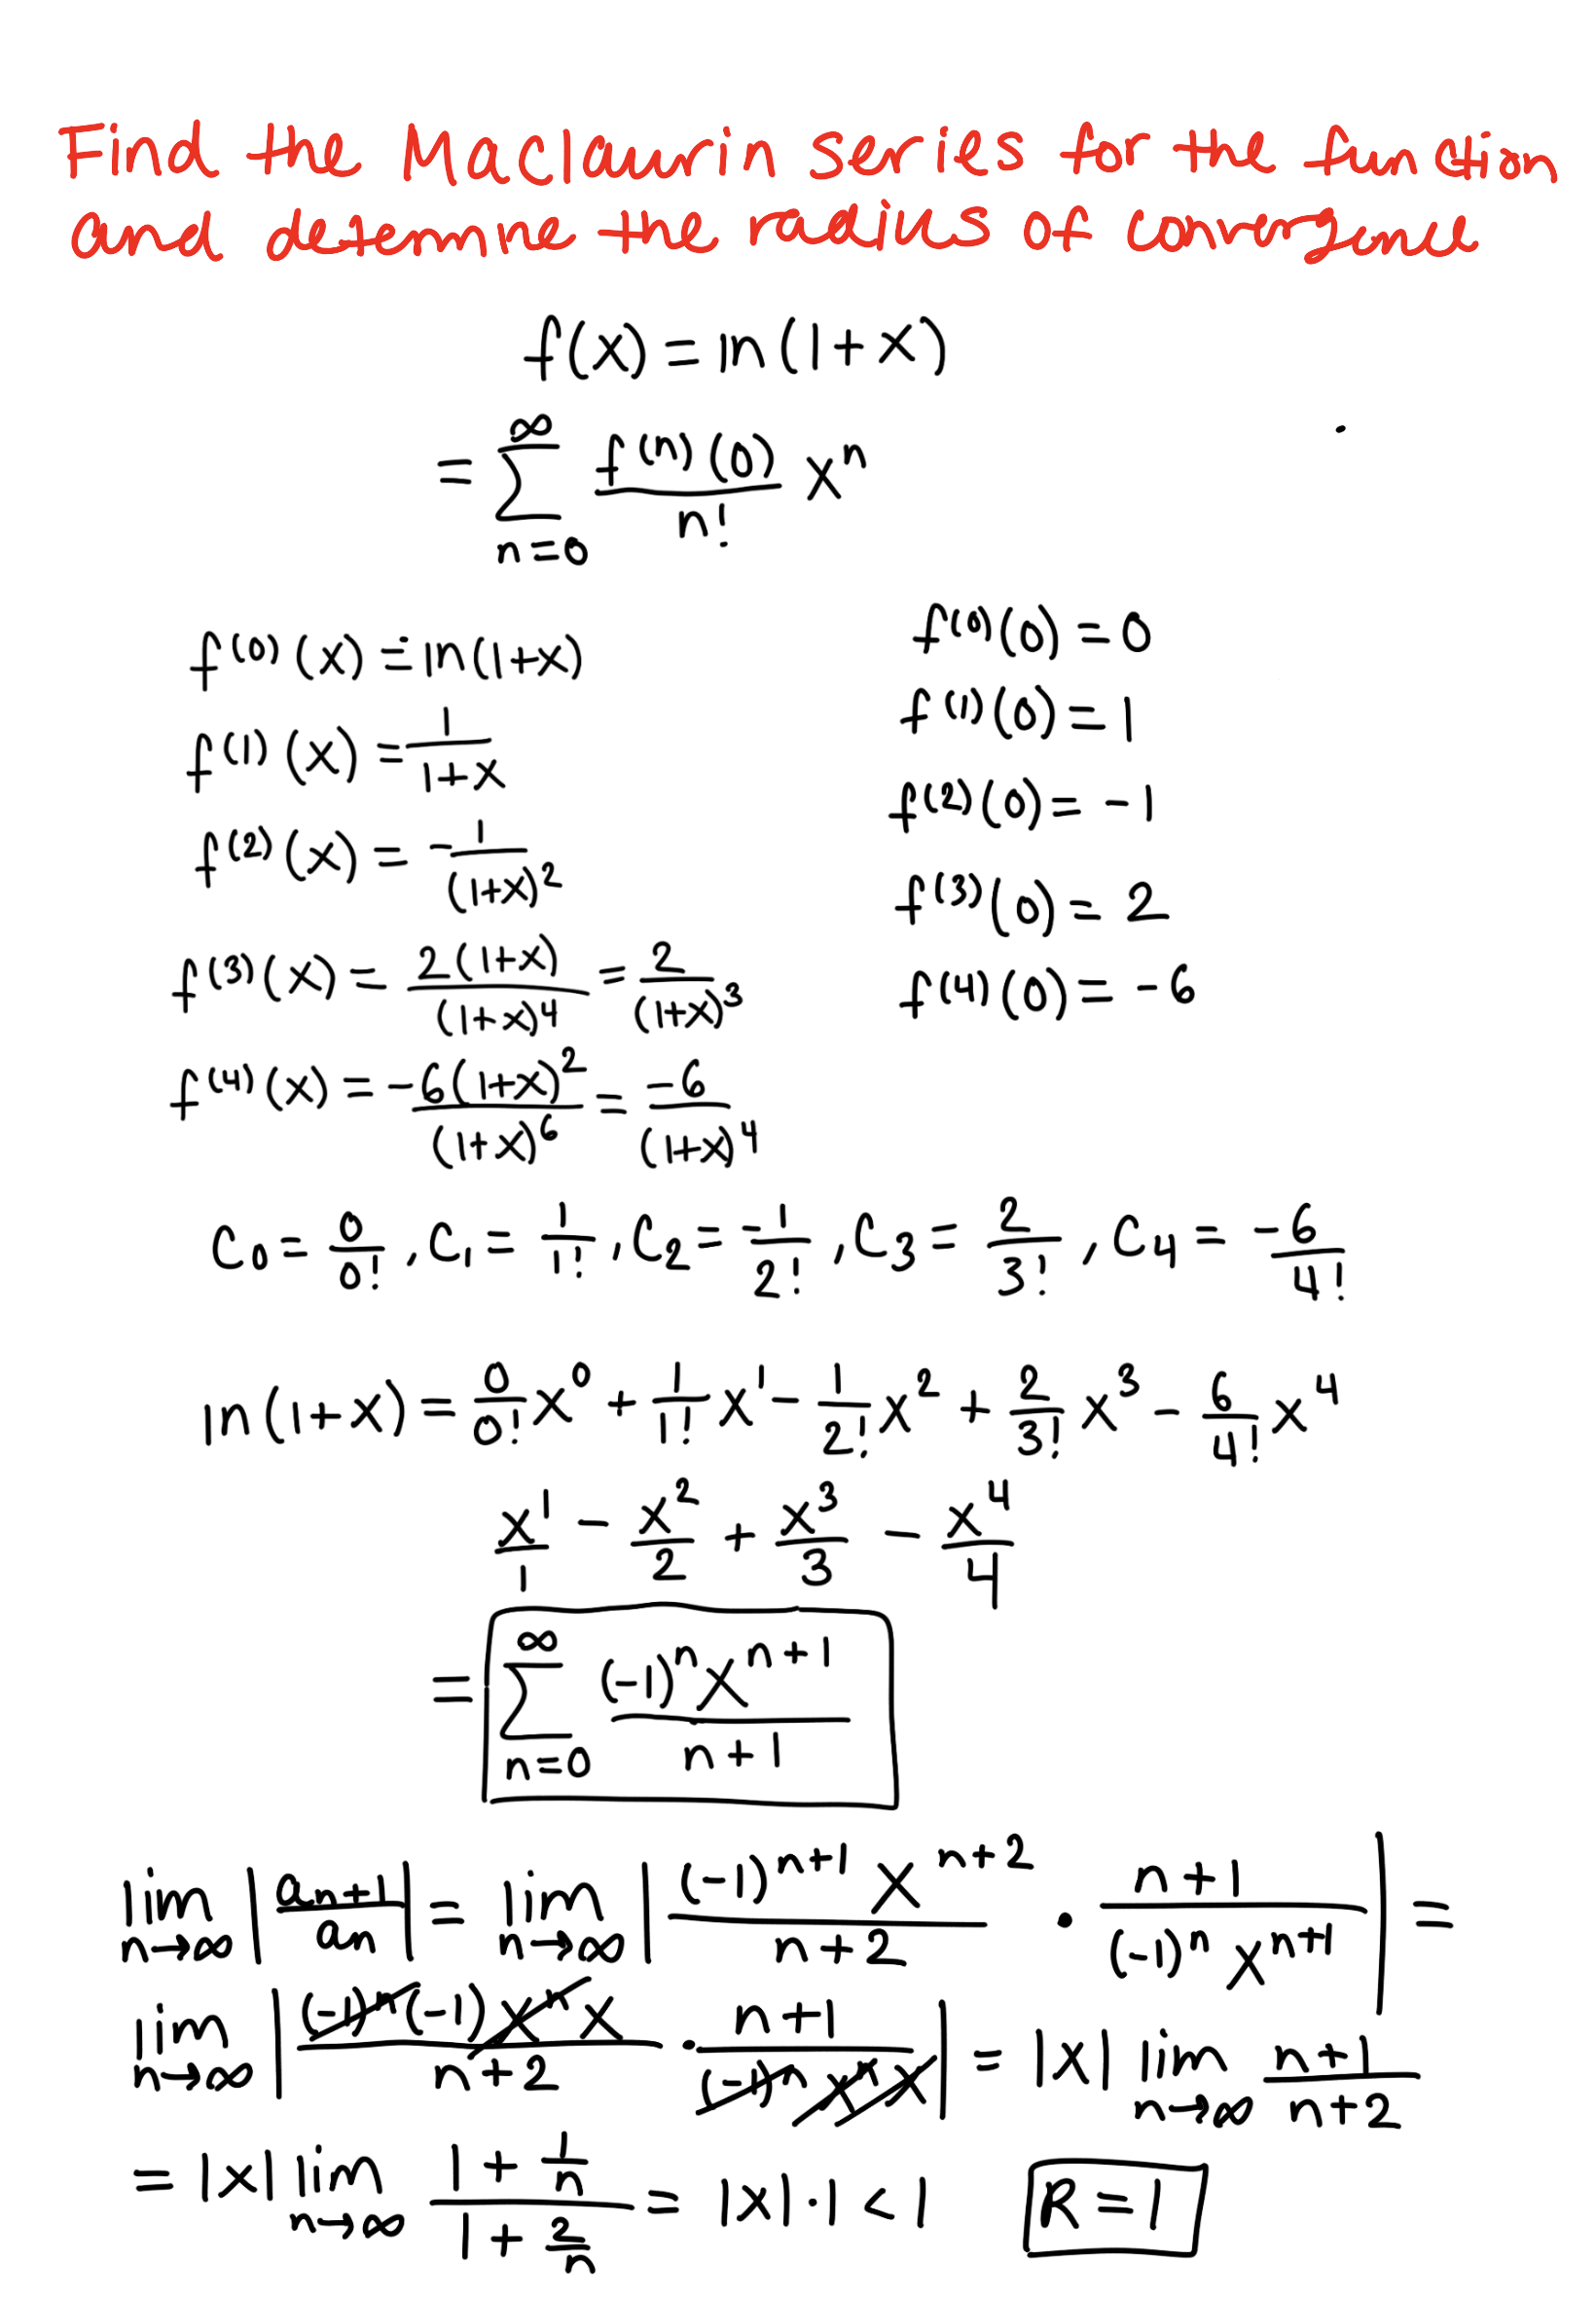 Find the Maclaurin series for the function
and determine the radius of convergence
f(x) = ln(1+x)
= ∑_{n=0}^{∞} f^(n)(0)/n! x^n
f^(0)(x) = ln(1+x)
f^(1)(x) = 1/(1+x)
f^(2)(x) = -1/(1+x)^2
f^(3)(x) = 2(1+x)/(1+x)^4 = 2/(1+x)^3
f^(4)(x) = -6(1+x)^2/(1+x)^6 = -6/(1+x)^4
f^(0)(0) = 0
f^(1)(0) = 1
f^(2)(0) = -1
f^(3)(0) = 2
f^(4)(0) = -6
C0 = 0/0!, C1 = 1/1!, C2 = -1/2!, C3 = 2/3!, C4 = -6/4!
ln(1+x) = 0/0! x^0 + 1/1! x^1 - 1/2! x^2 + 2/3! x^3 - 6/4! x^4
x^1/1 - x^2/2 + x^3/3 - x^4/4
= ∑_{n=0}^{∞} (-1)^n x^{n+1}/(n+1)
lim_{n→∞} |a_{n+1}/a_n| = lim_{n→∞} |(-1)^{n+1} x^{n+2}/(n+2) · (n+1)/((-1)^n x^{n+1})| =
lim_{n→∞} |(-1)^n (-1) x^n x/(n+2) · (n+1)/((-1)^n x^n x)| = |x| lim_{n→∞} (n+1)/(n+2)
= |x| lim_{n→∞} (1 + 1/n)/(1 + 2/n) = |x|·1 < 1 R = 1